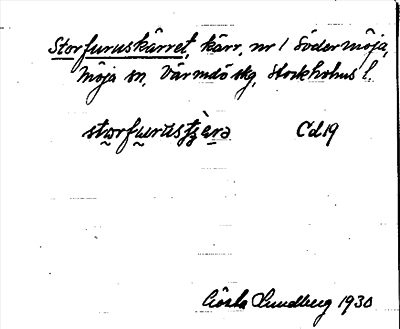 Storfuruskärret, kärr, nr 1 Södermöja,
Möja sn, Värmdö skg, Stockholms l.
Cd19
Gösta Lundberg 1930